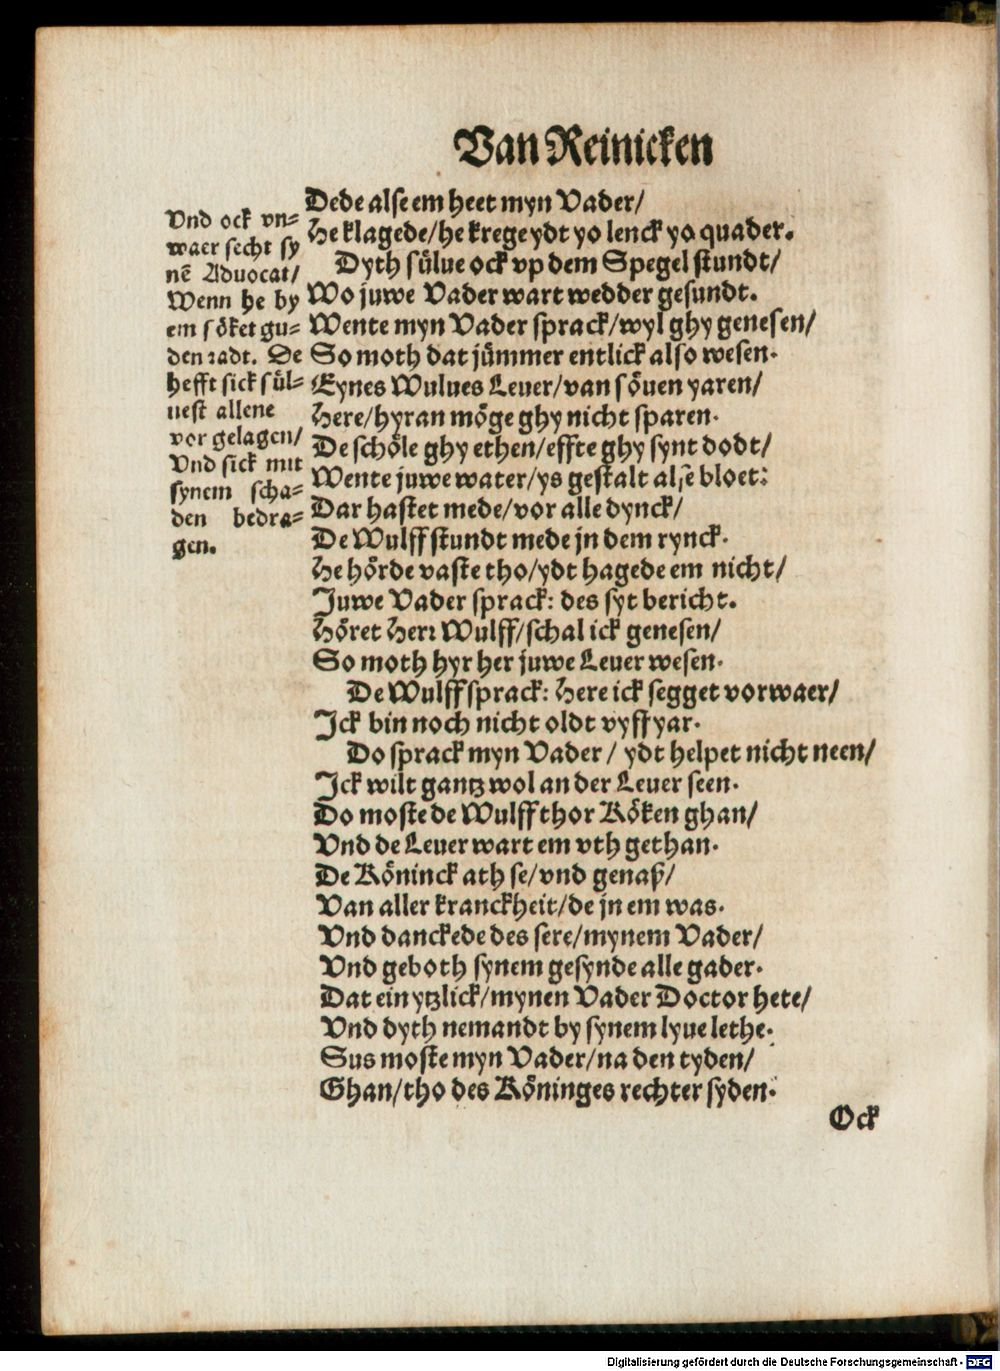 Van Reinicken
Vnd ock vn=
waer secht sy
nē Advocat/
Wenn he by
em söket gu=
den radt. De
hefft sick sül=
uest allene
vor gelagen/
Vnd sick mit
synem scha=
den bedra=
gen.
Dede alse em heet myn Vader/
He klagede/he krege ydt yo lenck yo quader.
Dyth sülue ock vp dem Spegel stundt/
Wo juwe Vader wart wedder gesundt.
Wente myn Vader sprack/wyl ghy genesen/
So moth dat jümmer entlick also wesen.
Eynes Wulues Leuer/van söuen yaren/
Here/hyran möge ghy nicht sparen.
De schöle ghy ethen/effte ghy synt dodt/
Wente juwe water/ys gestalt alse bloet:
Dar hastet mede/vor alle dynck/
De Wulff stundt mede jn dem rynck.
He hörde vaste tho/ydt hagede em nicht/
Juwe Vader sprack: des syt bericht.
Höret Herr Wulff/schal ick genesen/
So moth hyr her juwe Leuer wesen.
De Wulff sprack: Here ick segget vorwaer/
Ick bin noch nicht oldt vyff yar.
Do sprack myn Vader/ ydt helpet nicht neen/
Ick wilt gantz wol an der Leuer seen.
Do moste de Wulff thor Köken ghan/
Vnd de Leuer wart em vth gethan.
De Köninck ath se/vnd genaß/
Van aller kranckheit/de jn em was.
Vnd danckede des sere/mynem Vader/
Vnd geboth synem gesynde alle gader.
Dat ein ytzlick/mynen Vader Doctor hete/
Vnd dyth nemandt by synem lyue lethe.
Sus moste myn Vader/na den tyden/
Ghan/tho des Köninges rechter syden.
Ock
Digitalisierung gefördert durch die Deutsche Forschungsgemeinschaft - DFG